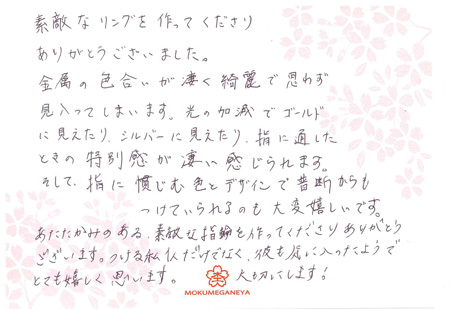 素敵なリングを作ってくださり
ありがとうございました。
金属の色合いが凄く綺麗で思わず
見入ってしまいます。光の加減でゴールド
に見えたり、シルバーに見えたり、指に通した
ときの特別感が凄い感じられます。
そして、指に慣じむ色とデザインで普断からも
つけていられるのも大変嬉しいです。
あたたかみのある、素敵な指輪を作ってくださりありがとう
ございます。つける私だけでなく、彼も気に入ったようで
とても嬉しく思います。大切にします!
MOKUMEGANEYA